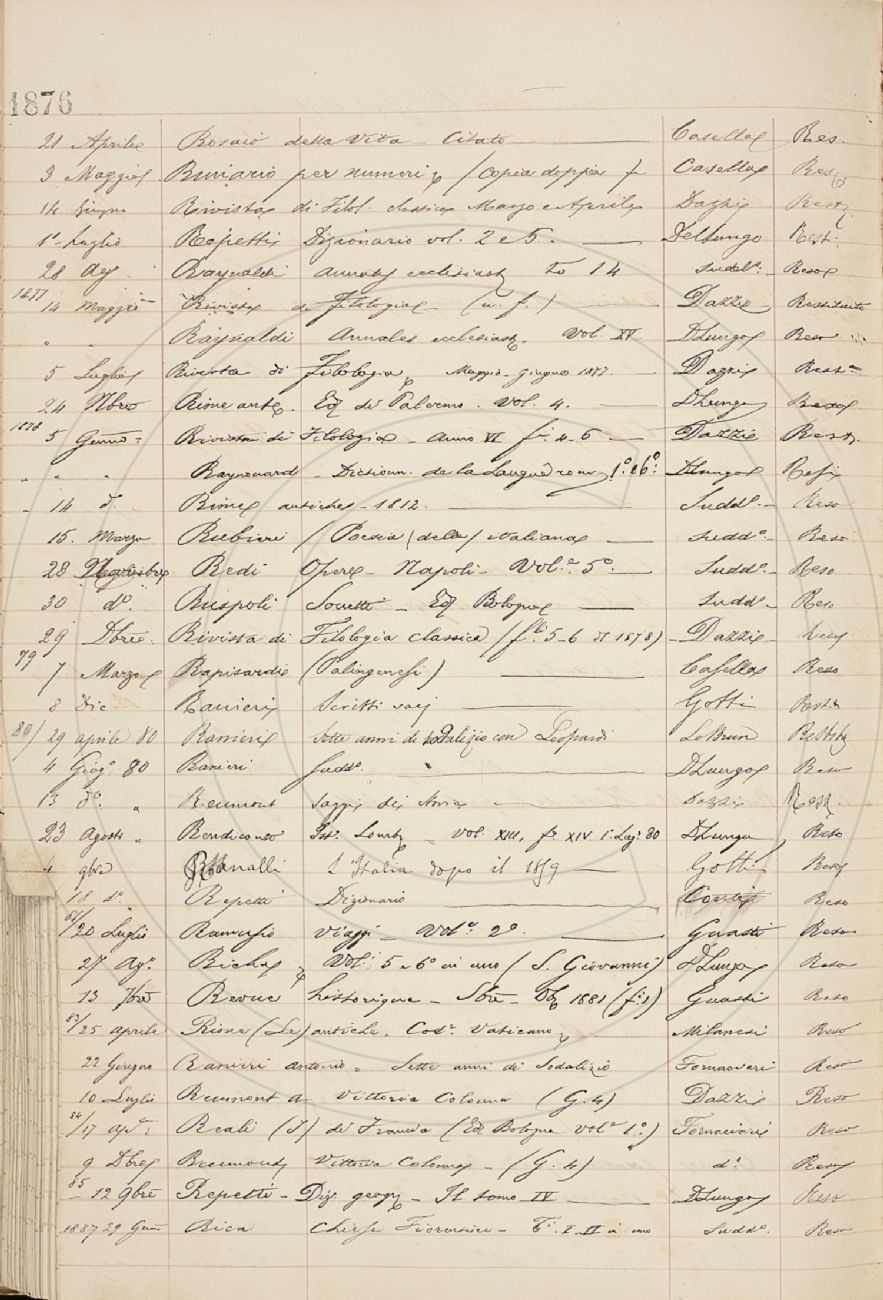 1876
21 Aprile Rosaio della Vita Citato Casella Res.
3 Maggio per numeri (copia doppia Casella Reso
14 Giugno Rivista di Filol. classica Marzo e Aprile Dazzi Rest.
1° Luglio Repetti Dizionario vol. 2 e 5. Del Lungo Rest.
28 Ag Raynaldi ecclesiast To 14 sudd°. Reso
1877 14 Maggio Rivista di filologia Dazzi Restituito
" " Raynaldi Annales ecclesiast. Vol. XV DLungo Reso
5 Luglio Rivista di Filologia, Maggio-giugno 1877. Dazzi Rest.
24 Nbre Rime ant. Ed di Palermo. Vol. 4. DLungo Reso
1878 5 Genn° Rivista di Filologia - Anno VI fi. 4-6 Dazzi Rest.
" " " Raynouard Diction. de la Langue romn 1°. e 6°. DLungo
" 14 d°. Rime antiche - 1812. Sudd°. Reso
15. Marzo Rubieri (Poesia (della) italiana Sudd°. Reso
28 Novembre Redi Opere - Napoli - Vol.e 5°. Sudd°. Reso
30 d°. Ruspoli Sonetti - Ed Bologna Sudd°. Reso
29 Dbre Rivista di Filologia classica (fli 5-6 1878) Dazzi Reso
79 7 Marzo Rapisardi (Palingenesi) Casella Reso
8 Dic Ranieri Scritti varj Gotti Restit
80/ 29 aprile 80 Ranieri Sette anni di sodalizio con Leopardi LeBrun Restit
4 Giug° 80 Ranieri Sudd°. DLungo Reso
13 d° " Reumont Saggi di storia Dazzi Rest.
23 Agosto " Rendiconto Ist°. Lomb. vol. XIII, f. XIV 1. Lug. 80 DLungo Reso
4 9bre Ranalli L'Italia dopo il 1859 Gotti Reso
18 d°. Repetti Dizionario Reso
81/20 Luglio Ramusio Viaggi - Vol.e 2°. Guasti Reso
27 Ag°. Richa Vol. 5 e 6° in uno (S. Giovanni) DLungo Reso
13 7bre Revue historique - Sbre - Db 1881 (f. 1) Guasti Reso
83/25 aprile Rime (Le) antiche. Cod°. Vaticano Milanesi Reso
22 Giugno Ranieri Antonio - Sette anni di Sodalizio Fornaciari Reso
10 Luglio Reumont A. Vittoria Colonna (G. 4) Dazzi Reso
84/17 Reali (I) di Francia (Ed. Bologna vol.e 1°.) Fornaciari Reso
9 Dbre Reumont Vittoria Colonna - (G. 4) d°. Reso
85 12 9bre Repetti - Diz. geogr. - Il tomo IV DLungo Reso
1887 29 Genn Rica Chiese Fiorentine - T. I-II in uno Sudd°. Reso